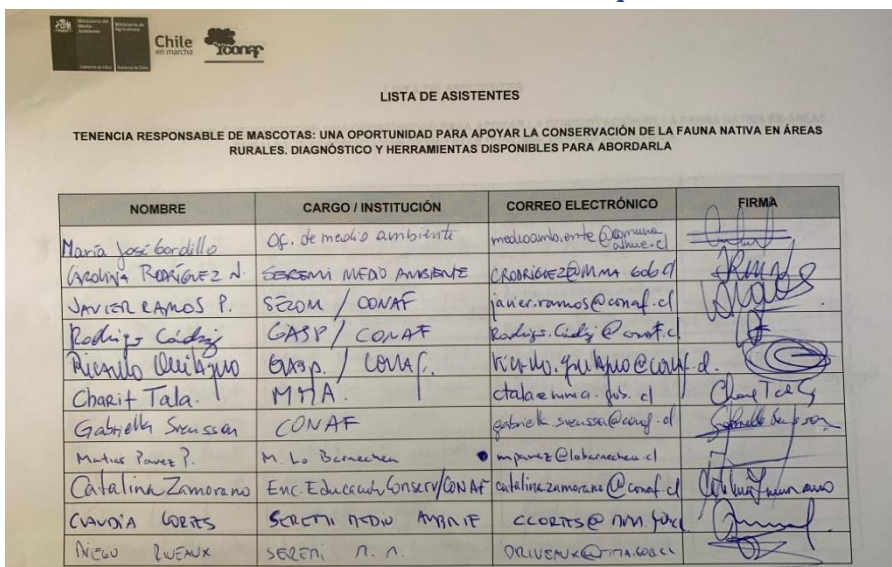 Ministerio del Medio Ambiente
Ministerio de Agricultura
Gobierno de Chile Gobierno de Chile
Chile
en marcha
CONAF
LISTA DE ASISTENTES
TENENCIA RESPONSABLE DE MASCOTAS: UNA OPORTUNIDAD PARA APOYAR LA CONSERVACIÓN DE LA FAUNA NATIVA EN ÁREAS
RURALES. DIAGNÓSTICO Y HERRAMIENTAS DISPONIBLES PARA ABORDARLA
NOMBRE CARGO / INSTITUCIÓN CORREO ELECTRÓNICO FIRMA
María José Gordillo Of. de medio ambiente medioambiente@comuna
alhue.cl
CAROLINA RODRÍGUEZ N. SEREMI MEDIO AMBIENTE CRODRIGUEZ@MMA.GOB.CL
JAVIER RAMOS P. / CONAF javier.ramos@conaf.cl
Rodrigo Cádiz GASP / CONAF Rodrigo.Cádiz@conaf.cl
Ricardo Quilaqueo GASP. / CONAF.
Charif Tala. MMA. ctala@mma.gob.cl Charif Tala
Gabriella Svensson CONAF gabriella.svensson@conaf.cl Gabriella Svensson
Matias Pavez P. M. Lo Barnechea mpavez@lobarnechea.cl
Catalina Zamorano Enc. Educación Conserv/CONAF catalina.zamorano@conaf.cl
CLAUDIA CORTES SEREMI MEDIO AMBNTE CCORTES@
DIEGO RIVEAUX SEREMI M. A. DRIVEAUX@MMA.GOB.CL